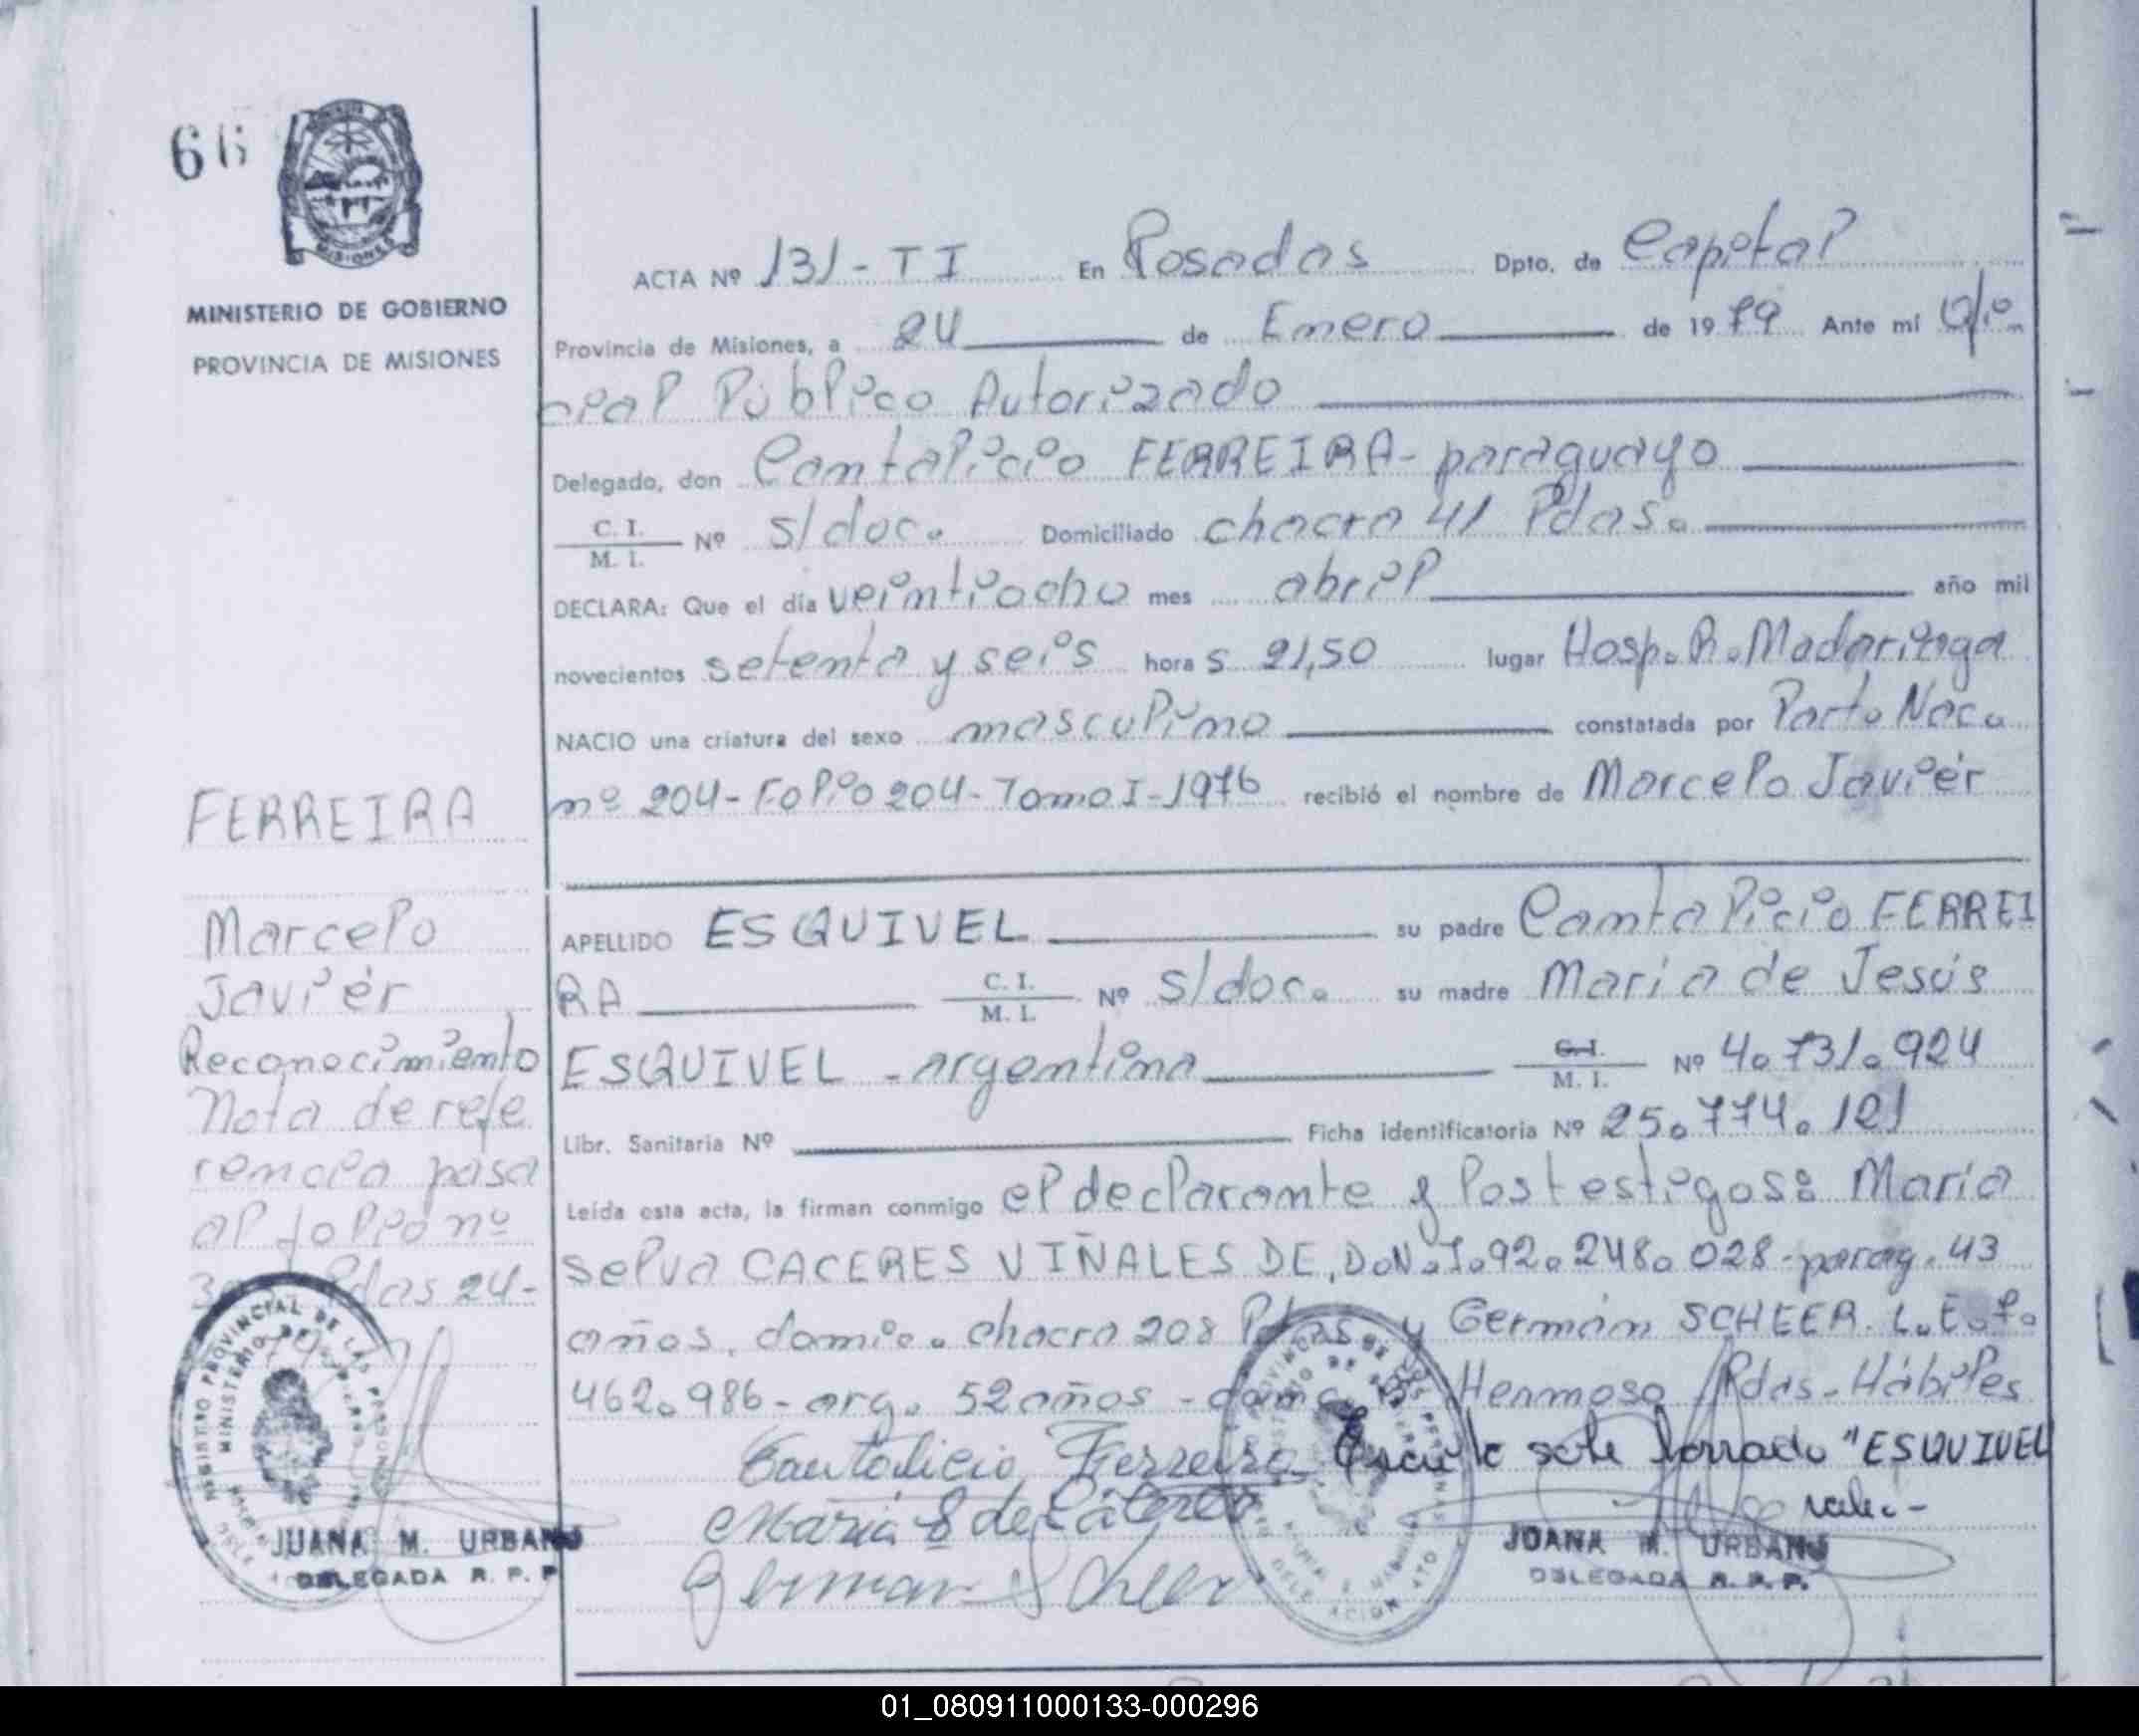 66
MISIONES
MINISTERIO DE GOBIERNO
PROVINCIA DE MISIONES
ACTA Nº 131-TI En Posadas Dpto. de Capital
Provincia de Misiones, a 24 de Enero de 1979 Ante mí Ofi
cial Público Autorizado
Delegado, don Cantalicio FERREIRA- paraguayo
C. I. / M. I. Nº s/doc. Domiciliado chacra 41 Pdas.
DECLARA: Que el día veintiocho mes abril año mil
novecientos setenta y seis hora s 21,50 lugar Hosp. R. Madariaga
NACIO una criatura del sexo masculino constatada por Parte Nac.
nº 204-Folio 204-Tomo I-1976 recibió el nombre de Marcelo Javiér
APELLIDO ESQUIVEL su padre Cantalicio FERREI
RA C. I. / M. I. Nº s/doc. su madre Maria de Jesús
ESQUIVEL - argentina C. I. / M. I. Nº 4.731.924
Libr. Sanitaria Nº Ficha identificatoria Nº 25.774.121
Leída esta acta, la firman conmigo el declarante y los testigos: María
Selva CACERES VIÑALES DE, D.N.I. 92.248.028-parag. 43
años, domic. chacra 208 Pdas. y Germán SCHEER. L.E. 7.
462.986-arg. 52 años - domc. Hermoso Pdas-Hábiles
Cantalicio Ferreira Escrito sobre borrado "ESQUIVEL
vale.-
María S de Cáceres
German Scheer
JUANA M. URBANO
DELEGADA R. P. P.
FERREIRA
Marcelo
Javiér
Reconocimiento
Nota de refe
rencia pasa
al folio nº
Pdas 24-
REGISTRO PROVINCIAL DE LAS PERSONAS
MINISTERIO DE
JUANA M. URBANO
DELEGADA R. P. P
01_080911000133-000296